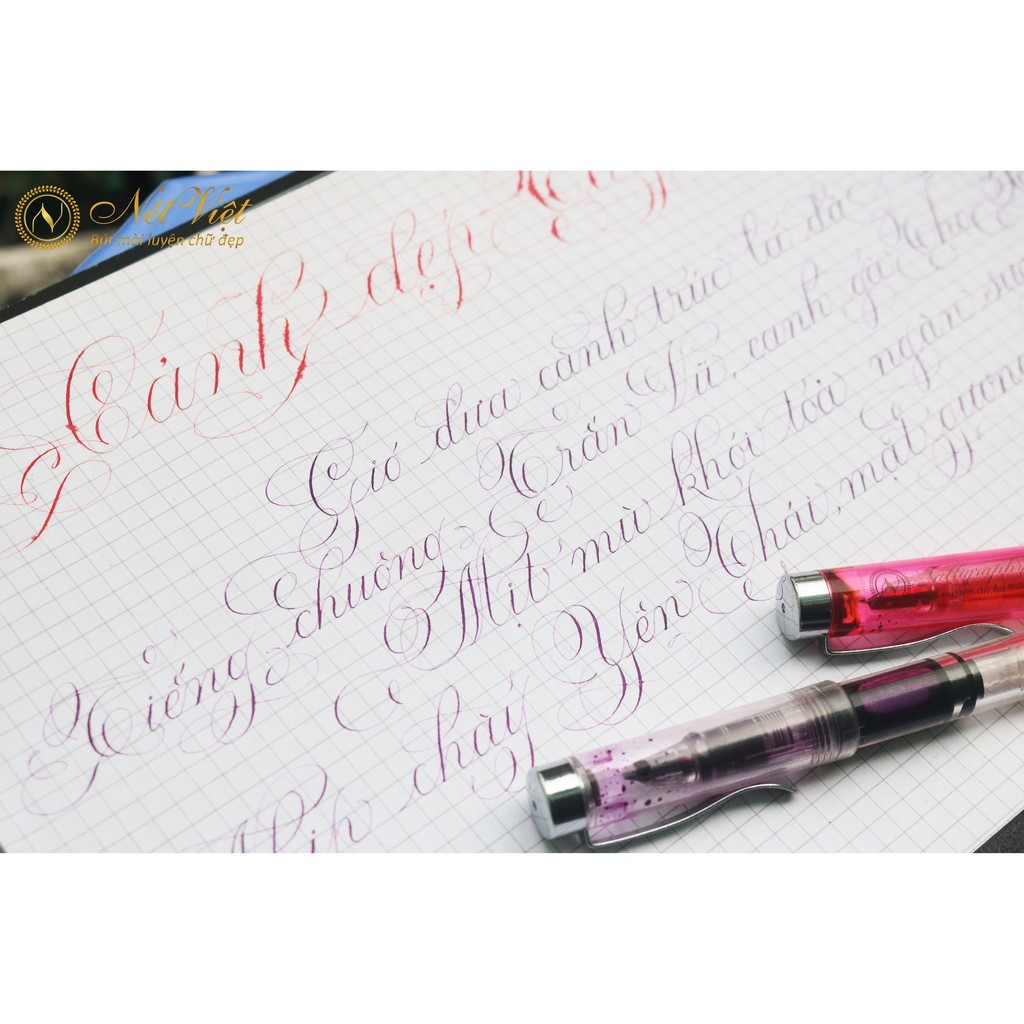 Nét Việt
Bút mài luyện chữ đẹp
Cảnh đẹp
Gió đưa cành trúc la đà
Tiếng chuông Trấn Vũ, canh gà Thọ
Mịt mù khói tỏa ngàn sương
Nhịp chày Yên Thái, mặt gương